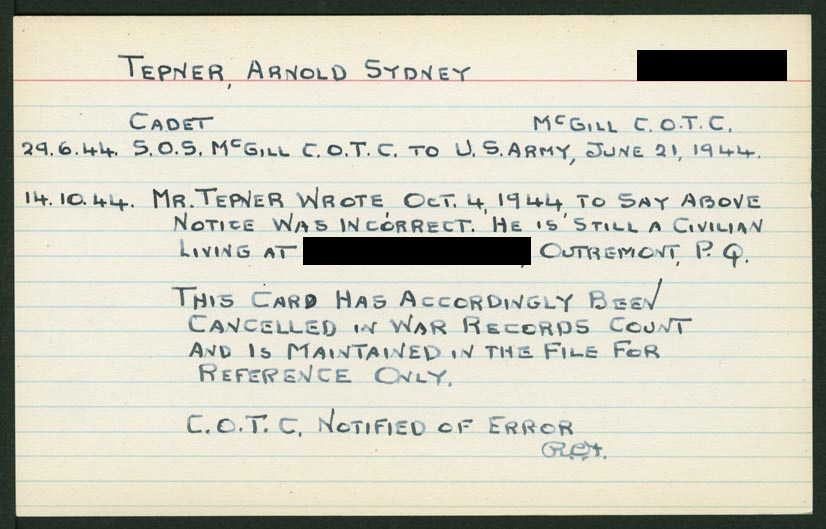 TEPNER, ARNOLD SYDNEY
CADET McGILL C.O.T.C.
29.6.44. S.O.S. McGILL C.O.T.C. TO U.S. ARMY, JUNE 21, 1944.
14.10.44. MR. TEPNER WROTE OCT. 4, 1944, TO SAY ABOVE
NOTICE WAS INCORRECT. HE IS STILL A CIVILIAN
LIVING AT , OUTREMONT, P.Q.
THIS CARD HAS ACCORDINGLY BEEN
CANCELLED IN WAR RECORDS COUNT
AND IS MAINTAINED IN THE FILE FOR
REFERENCE ONLY.
C.O.T.C. NOTIFIED OF ERROR